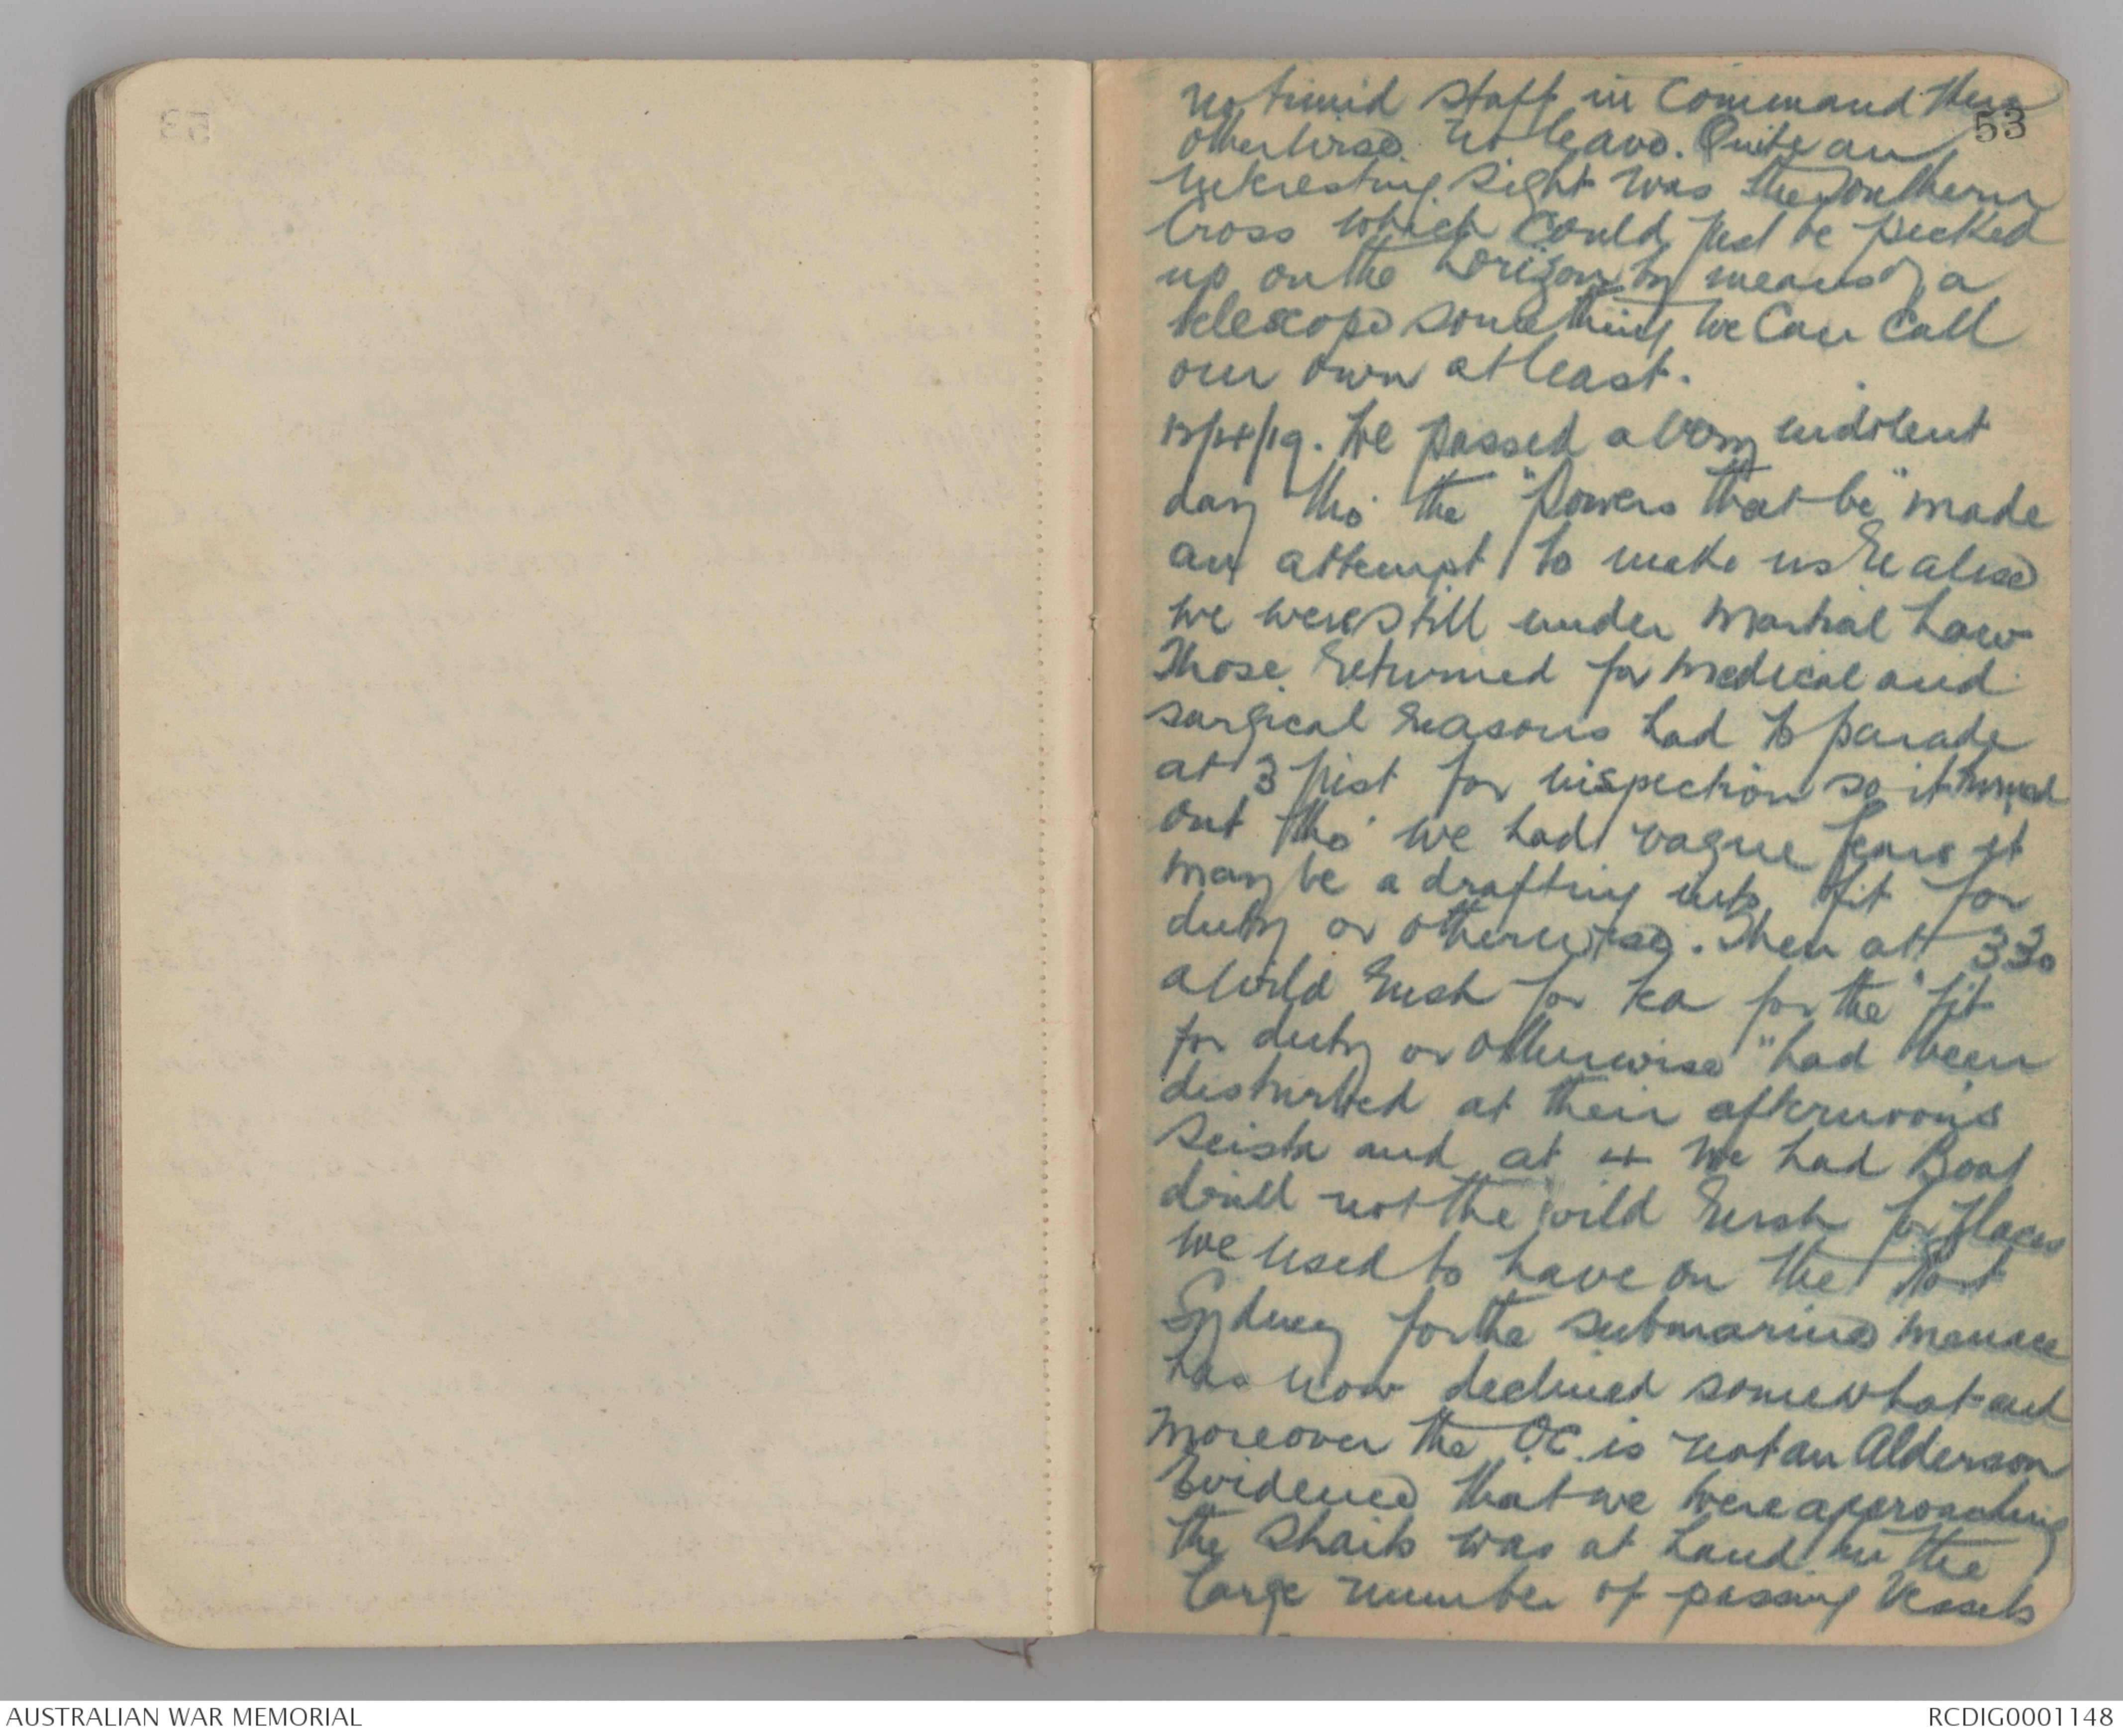 53
no timid staff in Command there
otherwise no leave. Quite an
interesting sight was the Southern
Cross which could just be picked
up on the horizon by means of a
telescope something we can call
our own at least.
/19. We passed a very indolent
day tho' the "Powers that be" made
an attempt to make us realise
we were still under Martial Law
Those returned for Medical and
surgical reasons had to parade
at 3 for inspection so it turned
out tho' we had vague fears it
may be a drafting into fit for
duty or otherwise. Then at 330
a wild rush for tea for the "fit
for duty or otherwise" had been
disturbed at their afternoon's
Seista and at 4 we had Boat
drill not the wild rush for places
we used to have on the Port
Sydney for the submarine menace
has now declined somewhat and
moreover the O.C. is not an Alderson
Evidence that we were approaching
the Straits was at hand in the
large number of passing vessels
AUSTRALIAN WAR MEMORIAL
RCDIG0001148